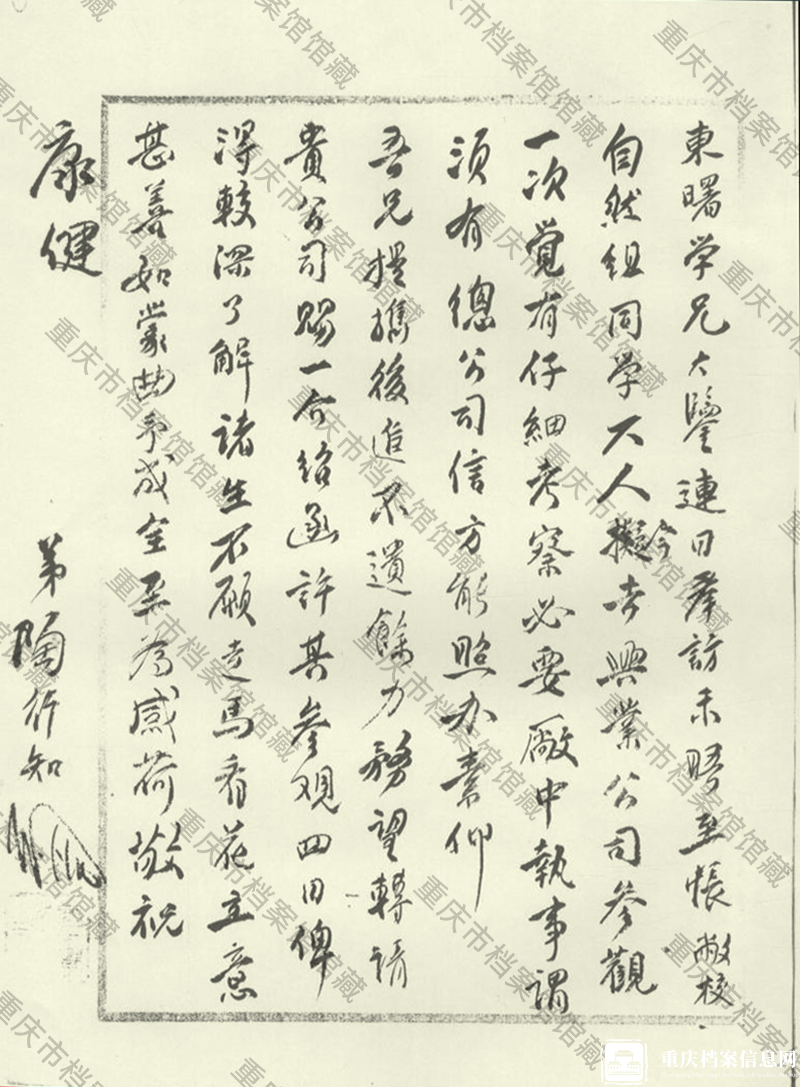 東曙学兄大鑒連日奉訪未晤至悵敝校
自然组同学六人擬今去興業公司參觀
一次覺有仔細考察必要廠中執事謂
须有總公司信方能照办素仰
吾兄提攜後進不遺餘力務望轉请
貴公司赐一介绍函許其參观四日俾
得較深了解諸生不願走馬看花立意
甚善如蒙曲予成全至为感荷敬祝
康健
弟陶行知
重庆市档案馆馆藏
重庆档案信息网